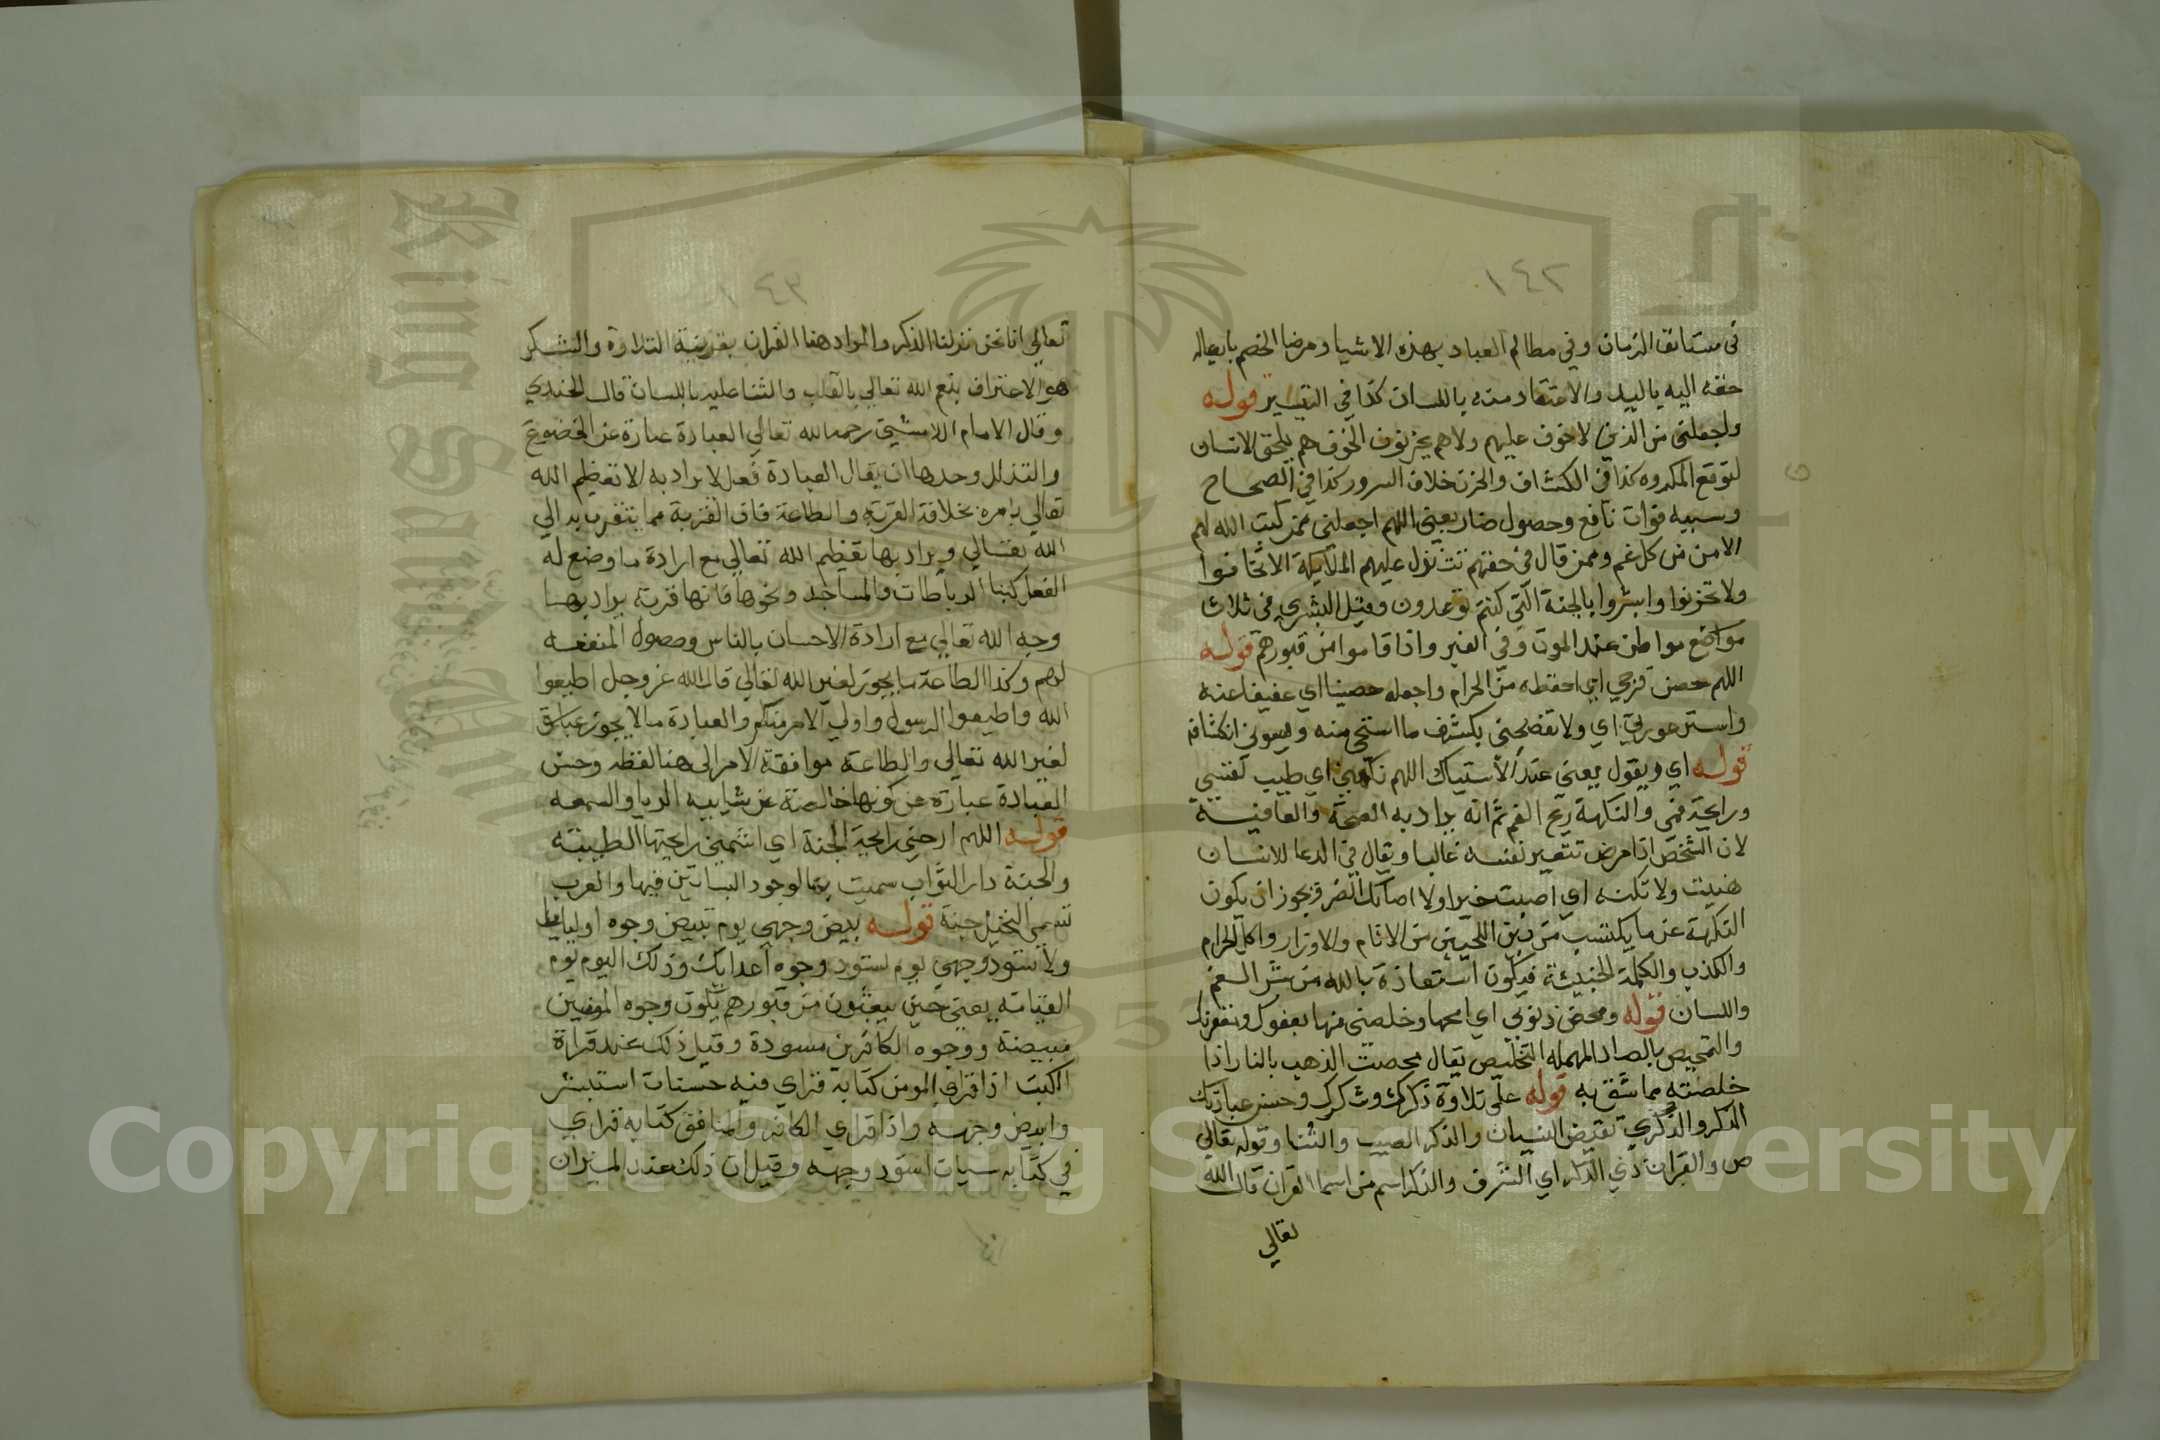 ١٤٢
في مستانف الزمان وفي مظالم العباد بهذه الاشيا ومرضا الخصم بايصال
حقه اليه باليد والاعتقاد منه باللسان كذا في التيسير قوله
واجعلني من الذين لا خوف عليهم ولا هم يحزنون الخوف هم يلحق الانسان
لتوقع المكروه كذا في الكشاف والحزن خلاف السرور كذا في الصحاح
وسببه فوات نافع وحصول ضار يعني اللهم اجعلني ممن كتبت الله لهم
الامن من كل غم وممن قال في حقهم تتنزل عليهم الملايكة الا تخافوا
ولا تحزنوا وابشروا بالجنة التي كنتم توعدون وقيل البشري في ثلاث
مواضع مواطن عند الموت وفي القبر واذا قاموا من قبورهم قوله
اللهم حصن فرجي اي احفظه من الحرام واجعله حصينا اي عفيفا عنه
واستر عورتي اي ولا تفضحني بكشف ما استحي منه ويسوني انكشافه
قوله اي ويقول يعني عند الاستياك اللهم نكهني اي طيب نفسي
ورايحة فمي والنكهة ريح الفم ثم انه يراد به الصحة والعافية
لان الشخص اذا مرض تتغير نفسه غالبا ويقال في الدعا للانسان
هنيت ولا تكنه اي اصبت خيرا ولا اصابك الضر فيجوز ان يكون
النكهة عن ما يكتسب من بين اللحيين من الاثام والاوزار واكل الحرام
والكذب والكلمة الخبيثة فيكون استعاذة بالله من شر الفم
واللسان قوله ومحض ذنوبي اي امحها وخلصني منها بعفوك ومغفرتك
والتمحيص بالصاد المهمله التخليص يقال محصت الذهب بالنار اذا
خلصته مما شق به قوله علي تلاوة ذكرك وشكرك وحسن عبادتك
الذكر والذكري نقيض النسيان والذكر الصيت والثنا وقوله تعالي
ص والقران ذي الذكر اي الشرف والذكر اسم من اسما القران قال الله
تعالي
١٤٣
تعالي انا نحن نزلنا الذكر والمراد هنا القران بقرينة التلاوة والشكر
هو الاعتراف بنعم الله تعالي بالقلب والثنا عليه باللسان قال الجندي
وقال الامام اللامشي رحمه الله تعالي العبادة عبارة عن الخضوع
والتذلل وحدها ان يقال العبادة فعل لا يراد به الا تعظيم الله
تعالي بامره بخلافة القربة والطاعة فان القربة مما يتقرب به الي
الله تعالي ويراد بها تعظيم الله تعالي مع ارادة ما وضع له
الفعل كبنا الرباطات والمساجد ونحوها فانها قربة يراد بها
وجه الله تعالي مع ارادة الاحسان بالناس وحصول المنفعه
لهم وكذا الطاعة ما يجوز لغير الله تعالي قال الله عز وجل اطيعوا
الله واطيعوا الرسول واولي الامر منكم والعبادة ما لا يجوز
لغير الله تعالي والطاعة موافقة الامر الي هنا لفظه وحسن
العبادة عبارة عن كونها خالصة عن شايبه الريا والسمعه
قوله اللهم ارحني رايحة الجنة اي اشممني رايحتها الطيبة
والجنة دار الثواب سميت بها لوجود البساتين فيها والعرب
تسمي النخيل جنة قوله بيض وجهي يوم تبيض وجوه اوليايك
ولا تسود وجهي يوم تسود وجوه اعدايك وذلك اليوم يوم
القيامة يعني حين يبعثون من قبورهم يكون وجوه المومنين
مبيضة ووجوه الكافرين مسودة وقيل ذلك عند قراة
الكتب اذا قراي المومن كتابه فراي فيه حسنات استبشر
وابيض وجهه واذا قراي الكافر والمنافق كتابه فراي
في كتابه سيات اسود وجهه وقيل ان ذلك عند الميزان
Copyright © King Saud University